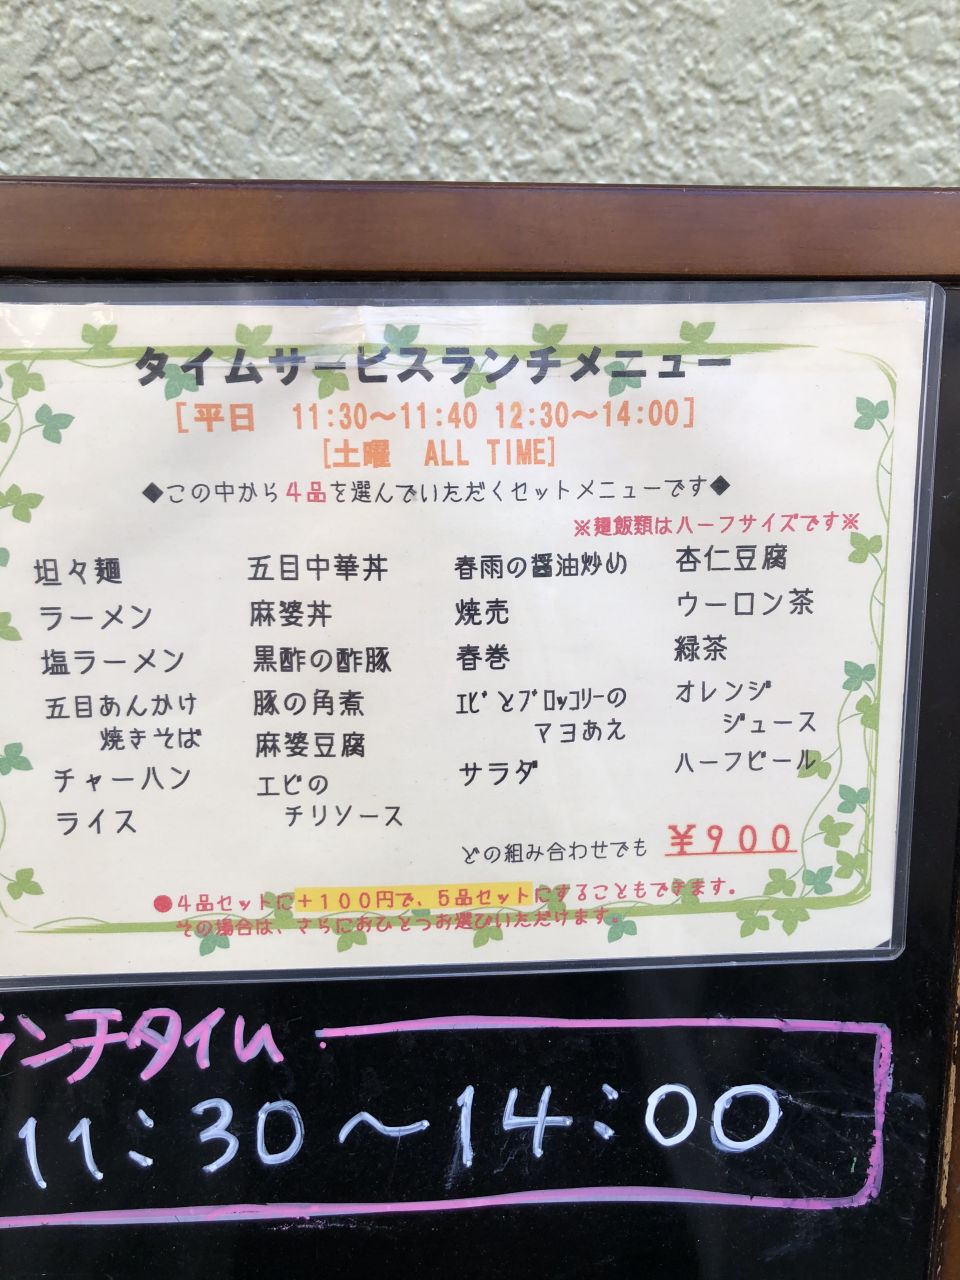 タイムサービスランチメニュー
[平日　11:30～11:40 12:30～14:00]
[土曜　ALL TIME]
◆この中から４品を選んでいただくセットメニューです◆
※麺飯類はハーフサイズです※
坦々麺
ラーメン
塩ラーメン
五目あんかけ
焼きそば
チャーハン
ライス
五目中華丼
麻婆丼
黒酢の酢豚
豚の角煮
麻婆豆腐
エビの
チリソース
春雨の醤油炒め
焼売
春巻
ｴﾋﾞとﾌﾞﾛｯｺﾘｰの
マヨあえ
サラダ
杏仁豆腐
ウーロン茶
緑茶
オレンジ
ジュース
ハーフビール
どの組み合わせでも ￥９００
●４品セットに＋１００円で、５品セットにすることもできます。
その場合は、さらにおひとつお選びいただけます。
ランチタイム
11:30～14:00